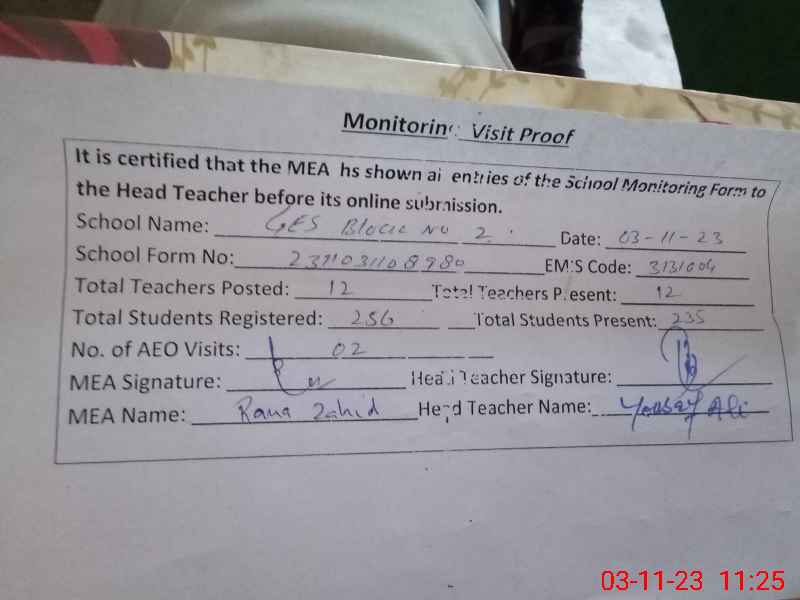 Monitoring Visit Proof
It is certified that the MEA hs shown al entries of the School Monitoring Form to
the Head Teacher before its online submission.
School Name: GES Block No 2 Date: 03-11-23
School Form No: 2311031108980 EMIS Code: 3131004
Total Teachers Posted: 12 Total Teachers Present: 12
Total Students Registered: 256 Total Students Present: 235
No. of AEO Visits: 02
MEA Signature: Head Teacher Signature:
MEA Name: Rana Zahid Head Teacher Name: Yousaf Ali
03-11-23 11:25